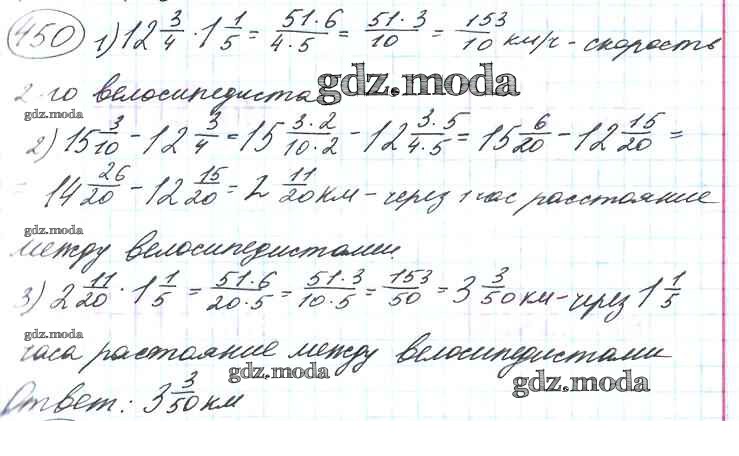 450 1) 12 3/4 · 1 1/5 = 51·6/4·5 = 51·3/10 = 153/10 км/ч - скорость
2-го велосипедиста gdz.moda
gdz.moda
2) 15 3/10 - 12 3/4 = 15 3·2/10·2 - 12 3·5/4·5 = 15 6/20 - 12 15/20 =
= 14 26/20 - 12 15/20 = 2 11/20 км - через 1 час расстояние
gdz.moda
между велосипедистами.
3) 2 11/20 · 1 1/5 = 51·6/20·5 = 51·3/10·5 = 153/50 = 3 3/50 км - через 1 1/5
gdz.moda
часа растояние между велосипедистами
gdz.moda
gdz.moda
Ответ: 3 3/50 км